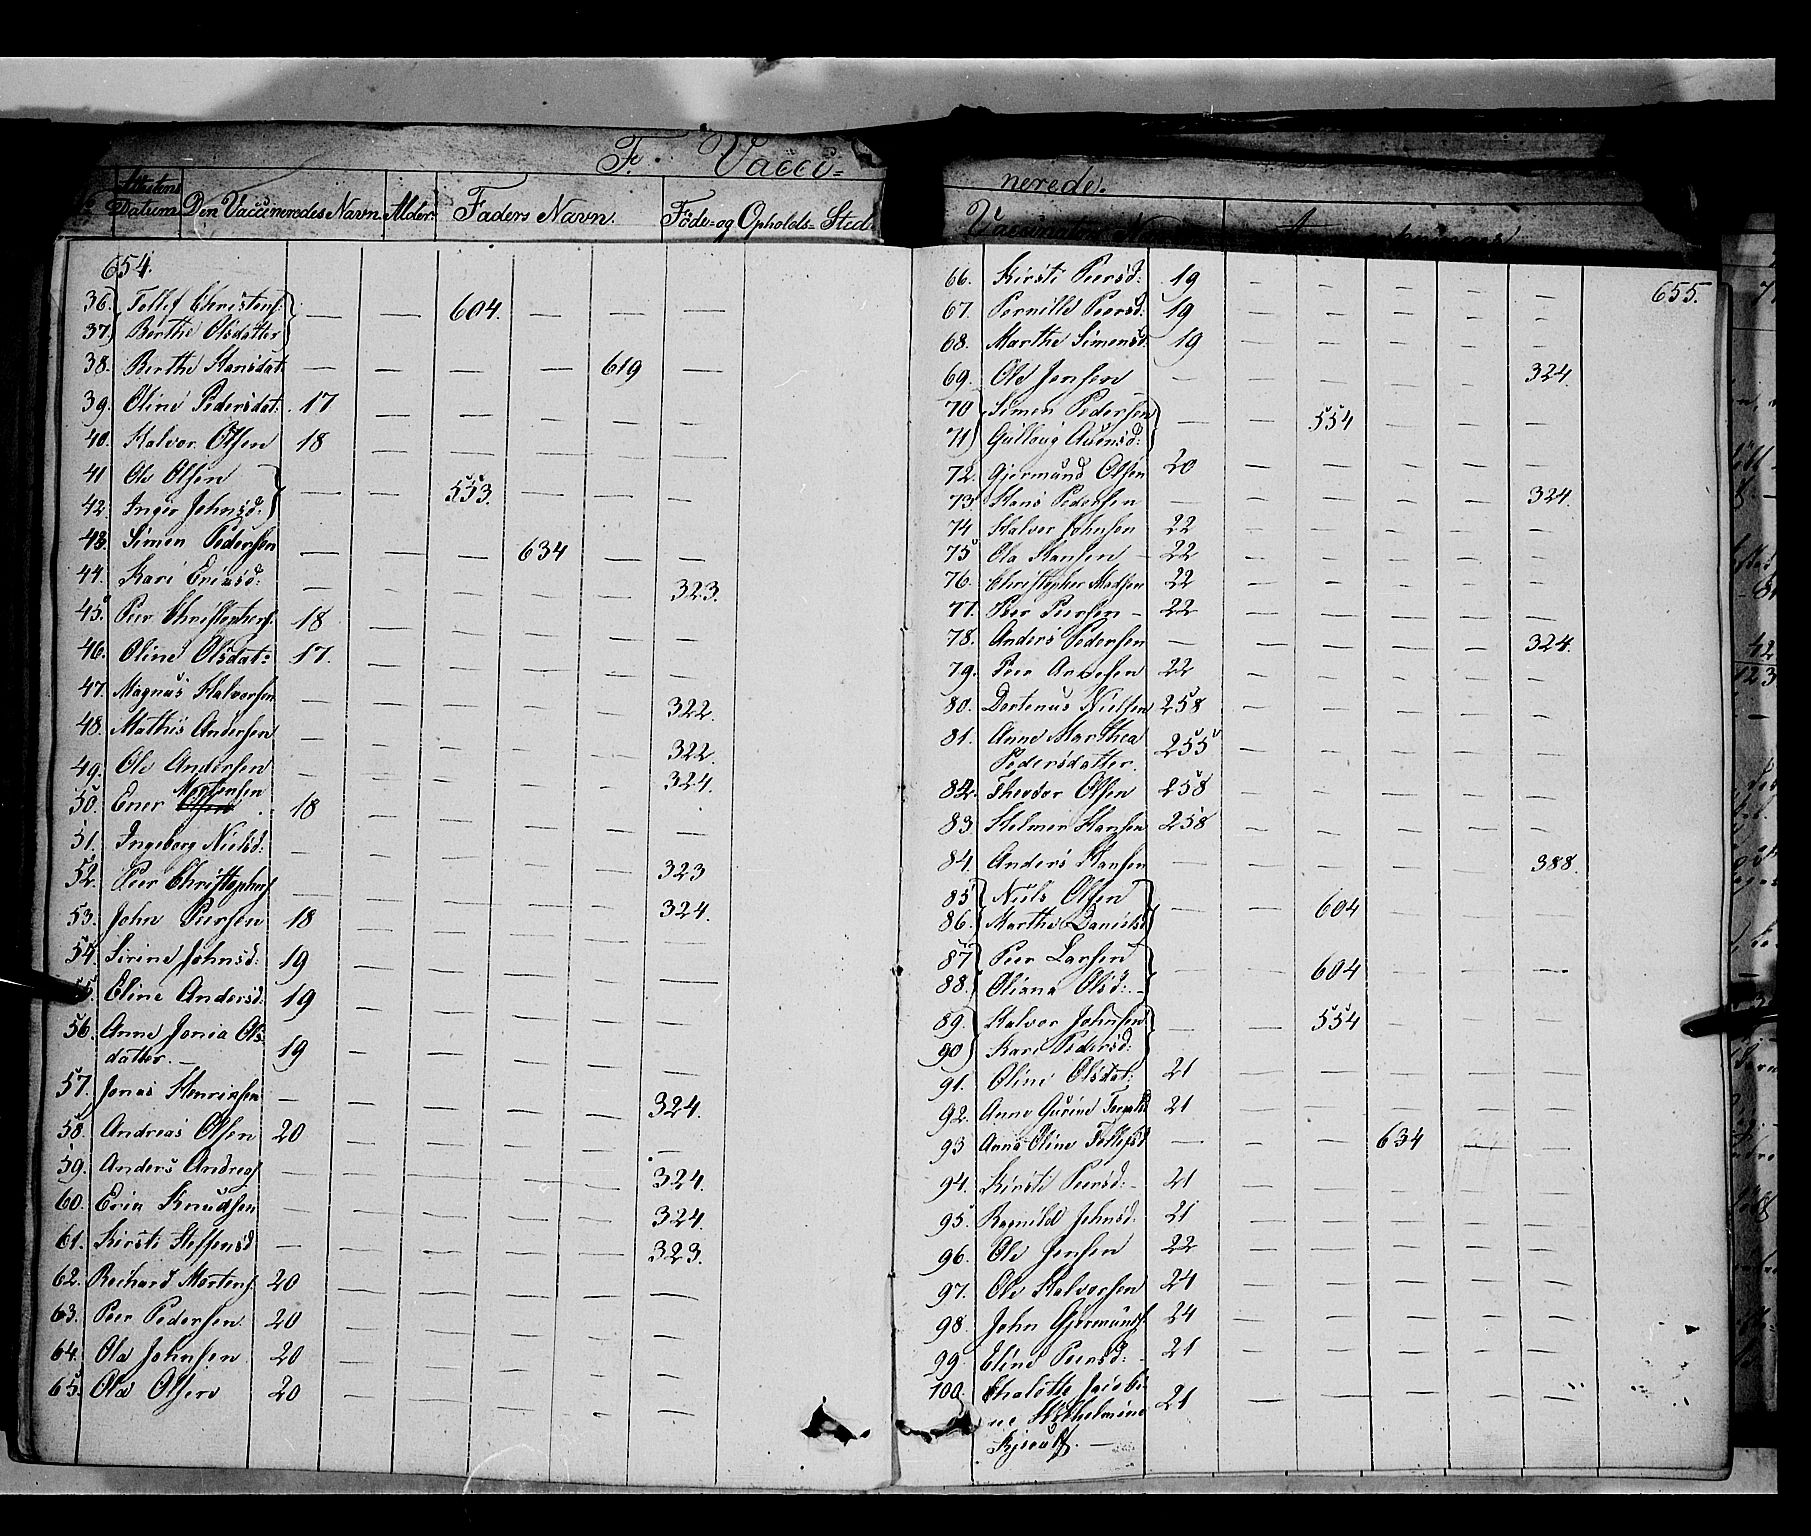 F. Vacci-
nerede.
Attestens Datum Den Vaccineredes Navn. Alder. Faders Navn. Föde- og Opholds-Sted
Vaccinateurens Navn
654.
36. Tollef Christens. — — 604. — — —
37. Berthe Olsdatter
38. Berthe Hansdat. — — — — 619 —
39. Oline Pedersdat. 17 — — — — —
40. Halvor Olsen 18 — — — — —
41 Ole Olsen — — 553. — — —
42. Inger Johnsd.
43. Simen Pedersen — — — 634 — —
44. Kari Ericsd: — — — — — 323.
45. Peer Christophers. 18 — — — — —
46. Oline Olsdat: 17. — — — — —
47. Magnus Halvorsen — — — — — 322.
48. Mathis Andersen — — — — — 322.
49. Ole Andersen — — — — — 324.
Mortensen
50. Ener Olsen 18 — — — — —
51. Ingeborg Nielsd: — — — — — 323
52. Peer Christophers. — — — — — 324.
53. John Peersen 18 — — — — —
54. Sirine Johnsd: 19 — — — — —
55. Eline Andersd. 19 — — — — —
56. Anne Jonia Ols
datter. — 19 — — — — —
57. Jonas Henriksen — — — — — 324.
58. Andreas Olsen 20 — — — — —
59. Anders Andreas. — — — — — 324.
60. Eric Knudsen — — — — — 324.
61. Kirsti Steffensd — — — — — 323.
62. Richard Mortens. 20 — — — — —
63. Peer Pedersen 20 — — — — —
64. Ole Johnsen 20 — — — — —
65. Ole Olsen 20 — — — — —
655.
66. Kirsti Peersd: 19 — — — — —
67. Pernille Peersd: 19 — — — — —
68. Marthe Simensd. 19 — — — — —
69. Ole Jensen — — — — — 324.
70 Simen Pedersen — — 554 — — —
71 Gulloug Auensd:
72. Gjermund Olsen 20 — — — — —
73 Hans Pedersen — — — — — 324.
74 Halvor Johnsen 22 — — — — —
75 Ole Hansen — 22 — — — — —
76. Christopher Madsen 22 — — — — —
77. Peer Peersen — 22 — — — — —
78. Anders Pedersen — — — — — 324.
79. Peer Arnesen 22 — — — — —
80. Dortenus Nielsen 258 — — — — —
81. Anne Marthea
Pedersdatter. 255 — — — — —
82. Theodor Olsen 258 — — — — —
83. Helmer Hansen 258 — — — — —
84. Anders Hansen — — — — — 388.
85 Niels Olsen — — 604 — — —
86. Marthe Danielsd
87 Peer Larsen — — 604 — — —
88. Oliana Olsd: —
89. Halvor Johnsen — — 554 — — —
90 Kari Pedersd:
91. Oline Olsdat: 21 — — — — —
92. Anne Gurine 21 — — — — —
93 Anne Oline Tollefsd — — — 634 — —
94. Kirsti Peersd: — 21 — — — — —
95. Ragnild Johnsd. 21 — — — — —
96. Ole Jensen 22 — — — — —
97. Ole Halvorsen 24 — — — — —
98. John Gjermunds. 24 — — — — —
99. Eline Peersd: 21 — — — — —
100. Chalotte Jacobi
ne Wilhelmine 21 — — — — —